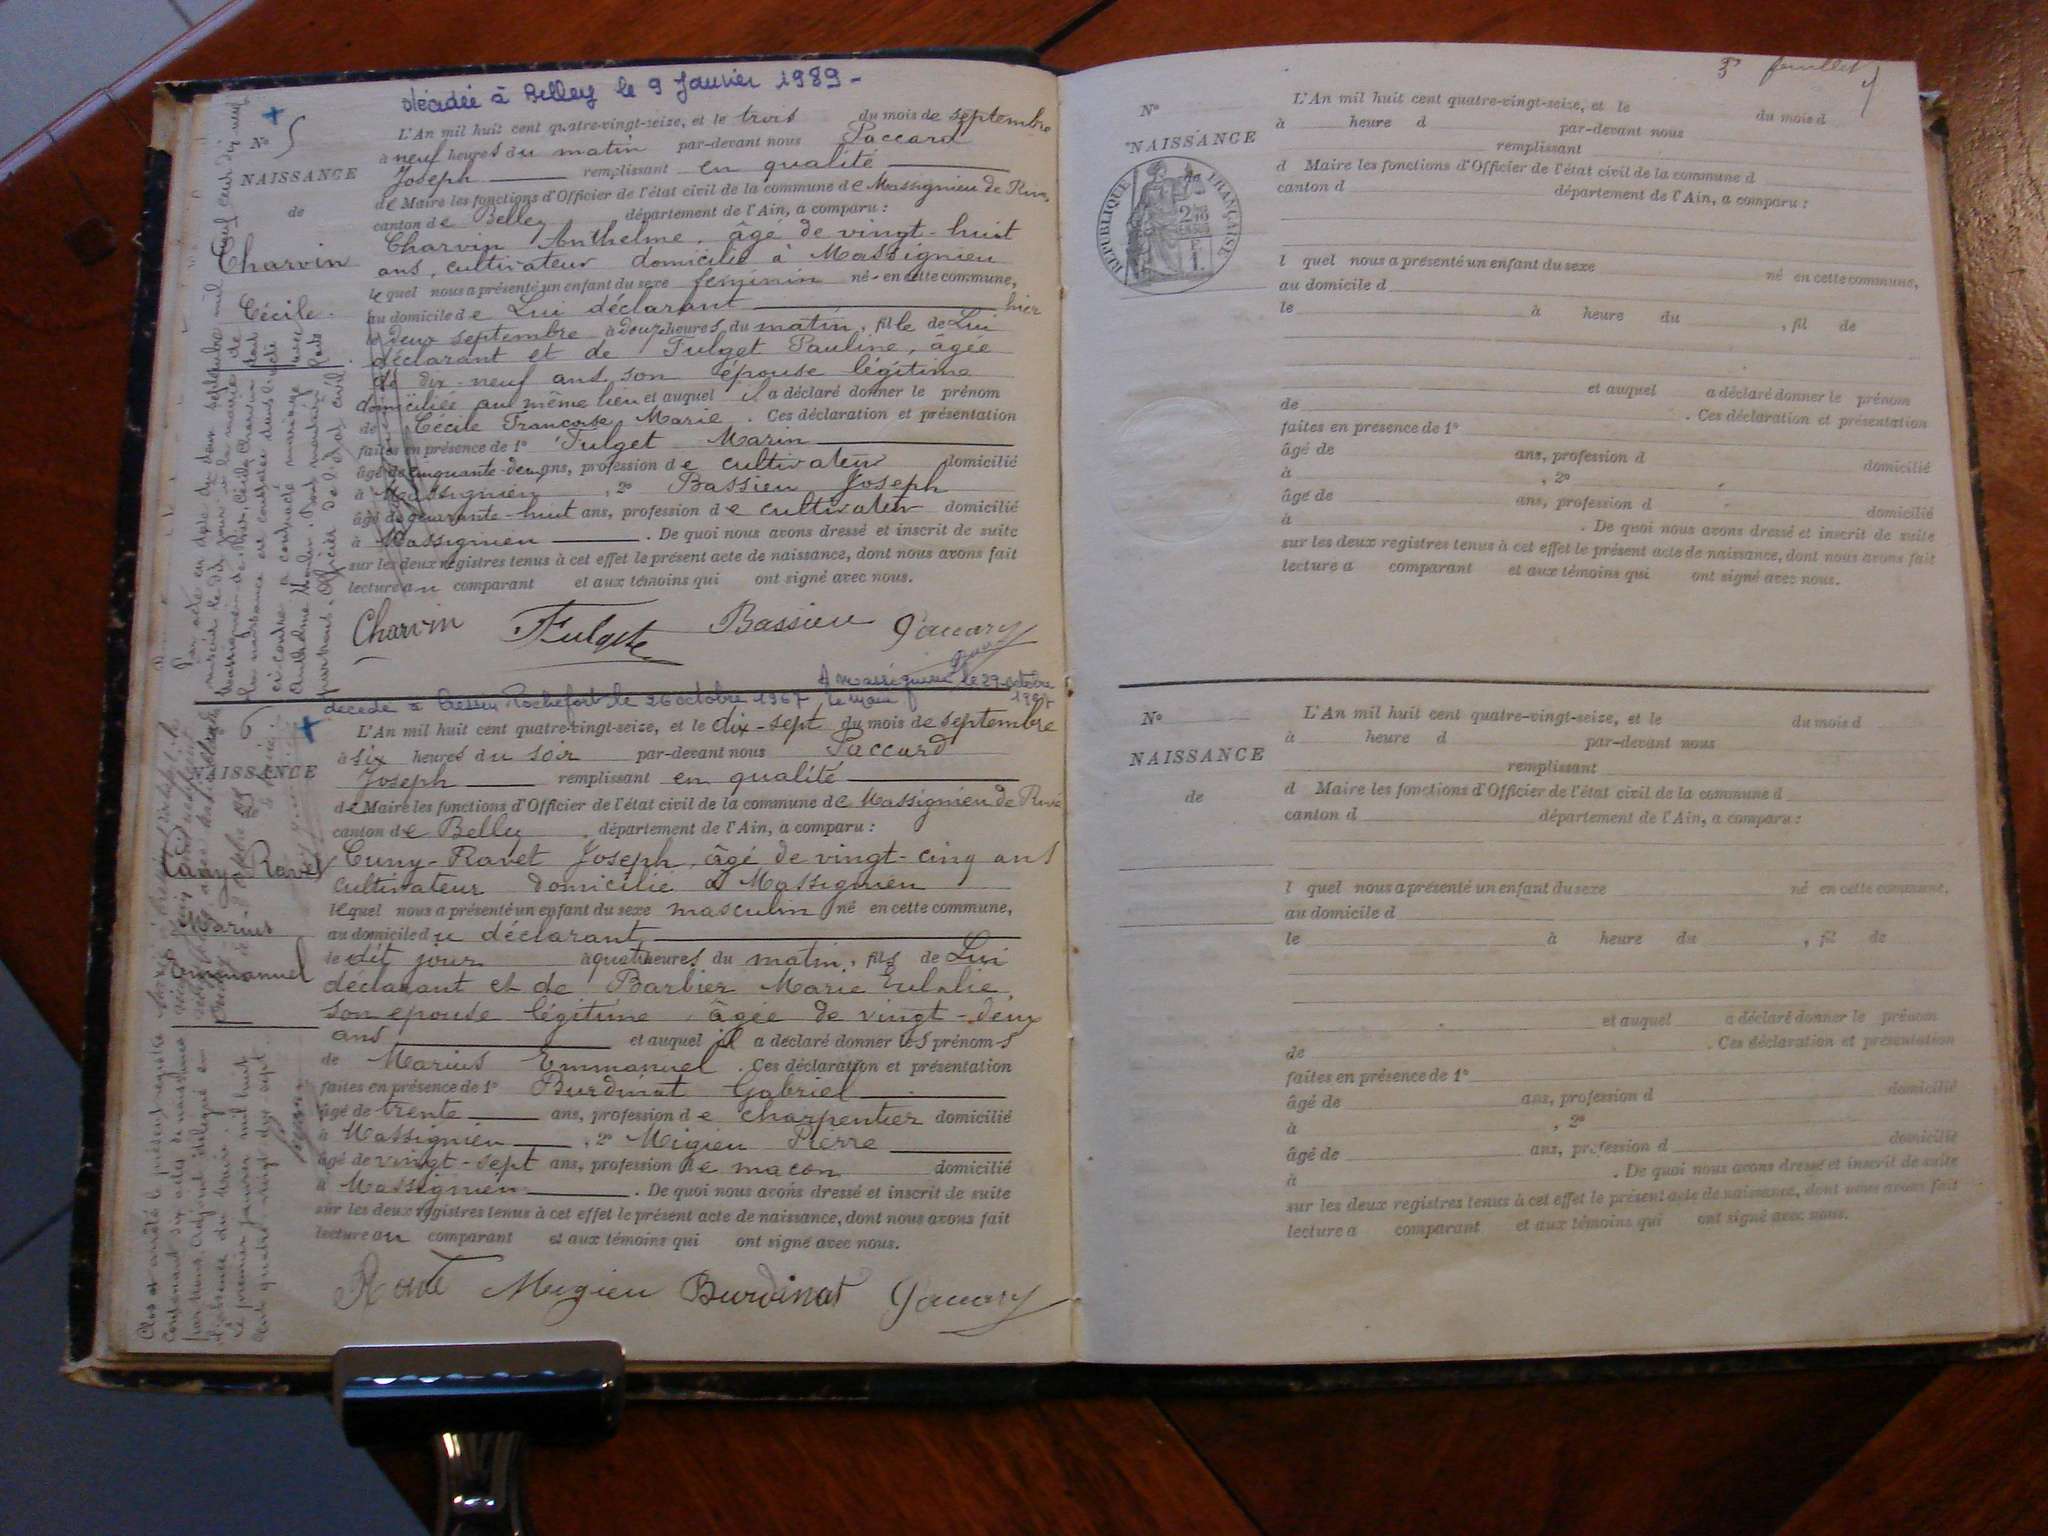 décédée à Belley le 9 Janvier 1989 -
L'An mil huit cent quatre-vingt-seize, et le trois du mois de septembre
à neuf heures du matin par-devant nous Paccard
Joseph remplissant en qualité
de Maire les fonctions d'Officier de l'état civil de la commune de Massignieu de Rive,
canton de Belley département de l'Ain, a comparu :
Charvin Anthelme, âgé de vingt-huit
ans, cultivateur domicilié à Massignieu
lequel nous a présenté un enfant du sexe féminin né en cette commune,
au domicile de Lui déclarant hier
le deux septembre à douze heures du matin, fille de Lui
déclarant et de Fulget Pauline, âgée
de dix-neuf ans, son épouse légitime
domiciliée au même lieu et auquel il a déclaré donner le prénom
de Cécile Françoise Marie. Ces déclaration et présentation
faites en présence de 1° Fulget Marin
âgé de cinquante-deux ans, profession de cultivateur domicilié
à Massignieu, 2° Bassieu Joseph
âgé de quarante-huit ans, profession de cultivateur domicilié
à Massignieu. De quoi nous avons dressé et inscrit de suite
sur les deux registres tenus à cet effet le présent acte de naissance, dont nous avons fait
lecture au comparant et aux témoins qui ont signé avec nous.
Charvin Fulget Bassieu Paccard
N° 5
NAISSANCE
de
Charvin
Cécile.
A Massignieu le 29 octobre
décédé à Cressin Rochefort le 26 octobre 1967 le Maire
6
NAISSANCE
Cuny-Ravet
Marius
Emmanuel
L'An mil huit cent quatre-vingt-seize, et le dix-sept du mois de septembre
à six heures du soir par-devant nous Paccard
Joseph remplissant en qualité
de Maire les fonctions d'Officier de l'état civil de la commune de Massignieu de Rive
canton de Belley, département de l'Ain, a comparu :
Cuny-Ravet Joseph, âgé de vingt-cinq ans
cultivateur domicilié à Massignieu
lequel nous a présenté un enfant du sexe masculin né en cette commune,
au domicile du déclarant
le dit jour à quatre heures du matin, fils de Lui
déclarant et de Barbier Marie Eulalie,
son épouse légitime, âgée de vingt-deux
ans et auquel il a déclaré donner les prénoms
de Marius Emmanuel. Ces déclaration et présentation
faites en présence de 1° Burdinat Gabriel
âgé de trente ans, profession de charpentier domicilié
à Massignieu, 2° Migieu Pierre
âgé de vingt-sept ans, profession de maçon domicilié
à Massignieu. De quoi nous avons dressé et inscrit de suite
sur les deux registres tenus à cet effet le présent acte de naissance, dont nous avons fait
lecture au comparant et aux témoins qui ont signé avec nous.
Migieu Burdinat Paccard
Clos et arrêté le présent registre
contenant six actes de naissance
par nous, adjoint délégué en
l'absence du Maire
Le premier janvier mil huit
cent quatre-vingt-dix-sept
3e feuillet
N°
NAISSANCE
RÉPUBLIQUE FRANÇAISE
L'An mil huit cent quatre-vingt-seize, et le du mois d
à heure d par-devant nous
remplissant
d Maire les fonctions d'Officier de l'état civil de la commune d
canton d département de l'Ain, a comparu :
l quel nous a présenté un enfant du sexe né en cette commune,
au domicile d
le à heure du , fil de
et auquel a déclaré donner le prénom
de . Ces déclaration et présentation
faites en présence de 1°
âgé de ans, profession d domicilié
à , 2°
âgé de ans, profession d domicilié
à . De quoi nous avons dressé et inscrit de suite
sur les deux registres tenus à cet effet le présent acte de naissance, dont nous avons fait
lecture a comparant et aux témoins qui ont signé avec nous.
N°
NAISSANCE
de
L'An mil huit cent quatre-vingt-seize, et le du mois d
à heure d par-devant nous
remplissant
d Maire les fonctions d'Officier de l'état civil de la commune d
canton d département de l'Ain, a comparu :
l quel nous a présenté un enfant du sexe né en cette commune,
au domicile d
le à heure du , fil de
et auquel a déclaré donner le prénom
de . Ces déclaration et présentation
faites en présence de 1°
âgé de ans, profession d domicilié
à , 2°
âgé de ans, profession d domicilié
à . De quoi nous avons dressé et inscrit de suite
sur les deux registres tenus à cet effet le présent acte de naissance, dont nous avons fait
lecture a comparant et aux témoins qui ont signé avec nous.